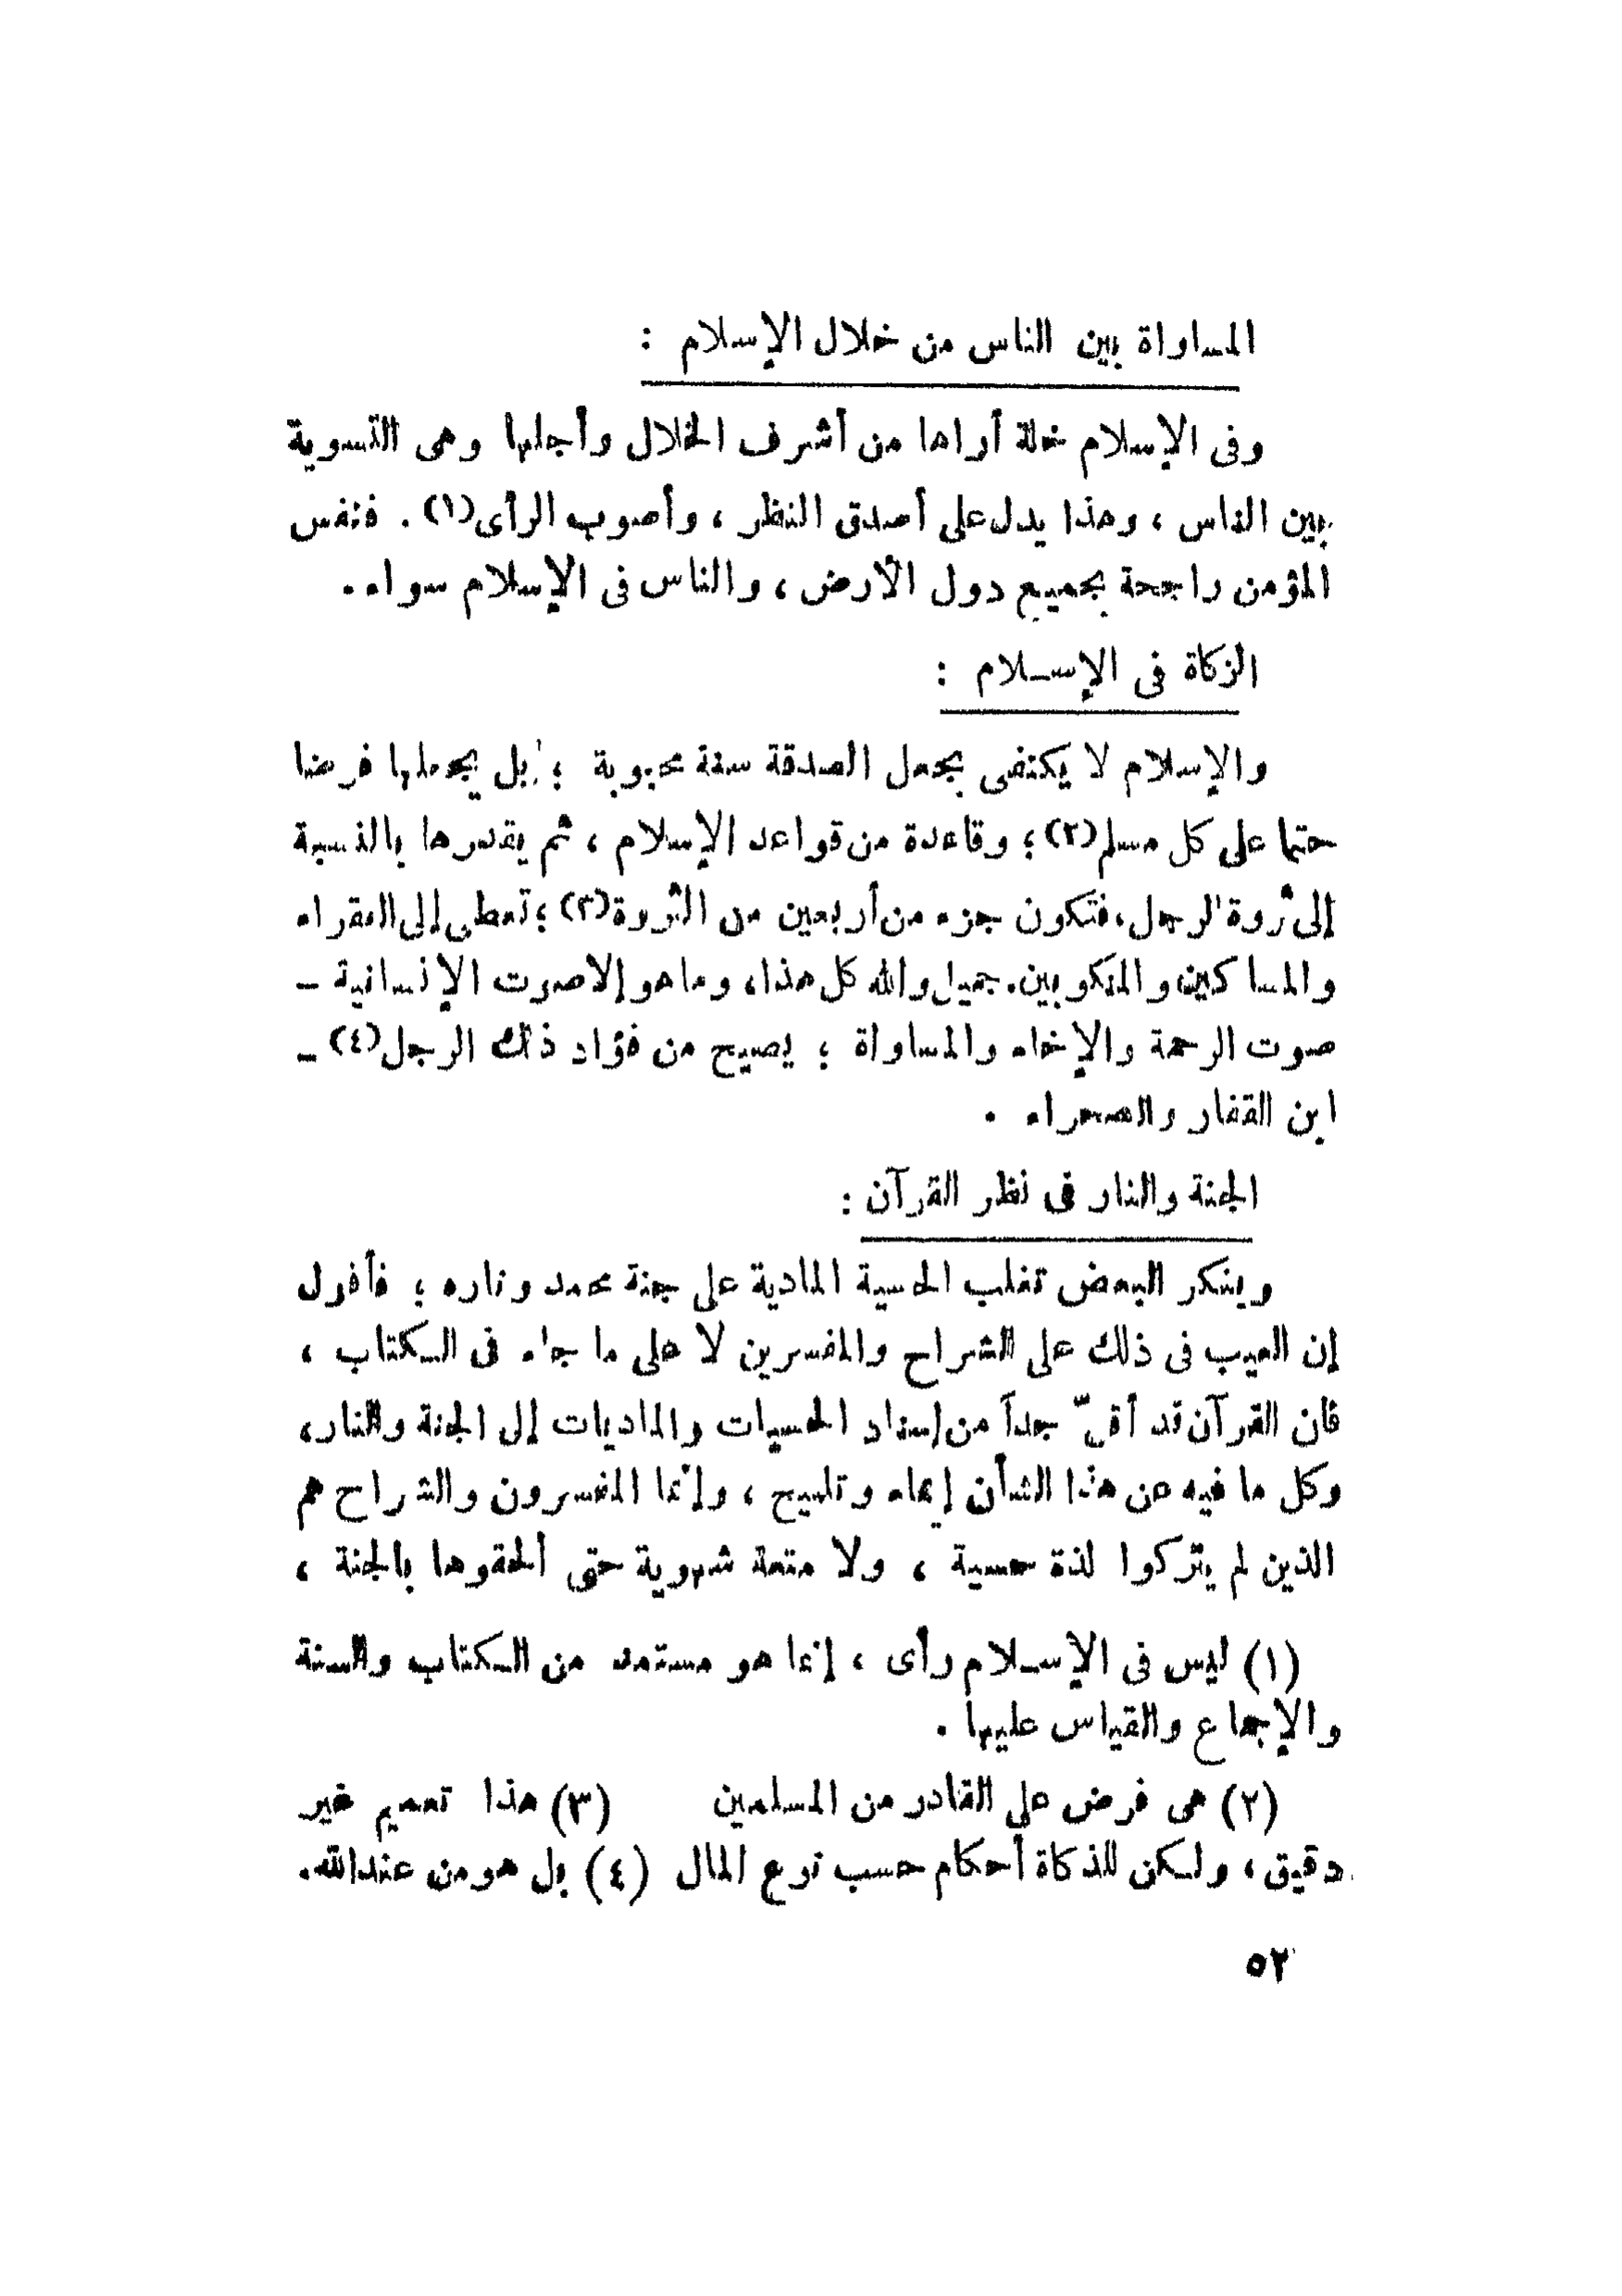 المساواة بين الناس من خلال الإسلام :
وفى الإسلام خلة أراها من أشرف الخلال وأجلها وهى التسوية
بين الناس ، وهذا يدل على أصدق النظر ، وأصوب الرأى(١) . فنفس
المؤمن راجحة بجميع دول الأرض ، والناس فى الإسلام سواء .
الزكاة فى الإسـلام :
والإسلام لا يكتفى بجعل الصدقة سنة محبوبة ؛ بل يجعلها فرضا
حتما على كل مسلم(٢) ؛ وقاعدة من قواعد الإسلام ، ثم يقدرها بالنسبة
إلى ثروة الرجل ، فتكون جزء من أربعين من الثروة(٣) ؛ تعطى إلى الفقراء
والمساكين والمنكوبين . جميل والله كل هذا ، وما هو إلا صوت الإنسانية –
صوت الرحمة والإخاء والمساواة ؛ يصيح من فؤاد ذلك الرجل(٤) –
ابن القفار والصحراء .
الجنة والنار فى نظر القرآن :
وينكر البعض تغلب الحسية المادية على جنة محمد وناره ؛ فأقول
إن العيب فى ذلك على الشراح والمفسرين لا على ما جاء فى الـكتاب ،
فان القرآن قد أقلّ جداً من إسناد الحسيات والماديات إلى الجنة والنار ،
وكل ما فيه عن هذا الشأن إيماء وتلميح ، وإنما المفسرون والشراح هم
الذين لم يتركوا لذة حسية ، ولا متعة شهوية حتى ألحقوها بالجنة ،
(١) ليس فى الإسـلام رأى ، إنما هو مستمد من الـكتاب والسنة
والإجماع والقياس عليها .
(٢) هى فرض على القادر من المسلمين (٣) هذا تعميم غير
دقيق ، ولـكن للذكاة أحكام حسب نوع المال (٤) بل هو من عند الله .
٥٢